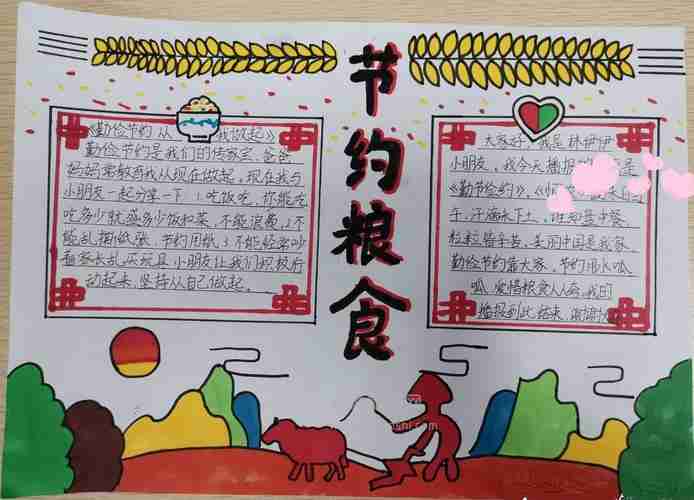 节约粮食
《勤俭节约从我做起》
勤俭节约是我们的传家宝,爸爸
妈妈常教育我从现在做起,现在我与
小朋友一起分享一下:1吃饭吃,你能吃
吃多少就盛多少饭和菜,不能浪费,2不
能乱撕纸张,节约用纸,3不能经常吵
着家长乱买玩具小朋友让我们积极行
动起来,坚持从自己做起。
大家好,我是林伊伊
小朋友,我今天播报的是
《勤节俭约》,《悯农》
午,汗滴禾下土,谁知盘中餐
粒粒皆辛苦,美丽中国是我家
勤俭节约靠大家,节约用水呱
呱,爱惜粮食人人夸,我的
播报到此结束,谢谢